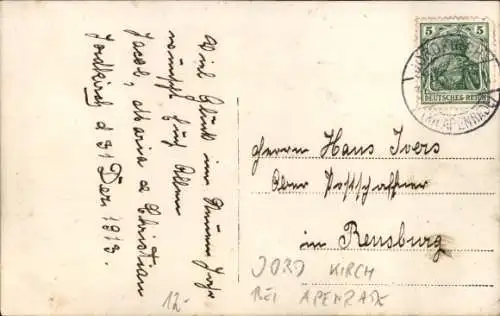 Viel Glück im Neuen Jahr
wünscht Euch Allen
Jacob, Maria & Christian
Jordkirch d 31 Dez 1913.
Herrn Hans Ivers
Ober Postschaffner
in Rensburg
JORDKIRCH
BEI APENRADE
12.-
5 5
DEUTSCHES REICH